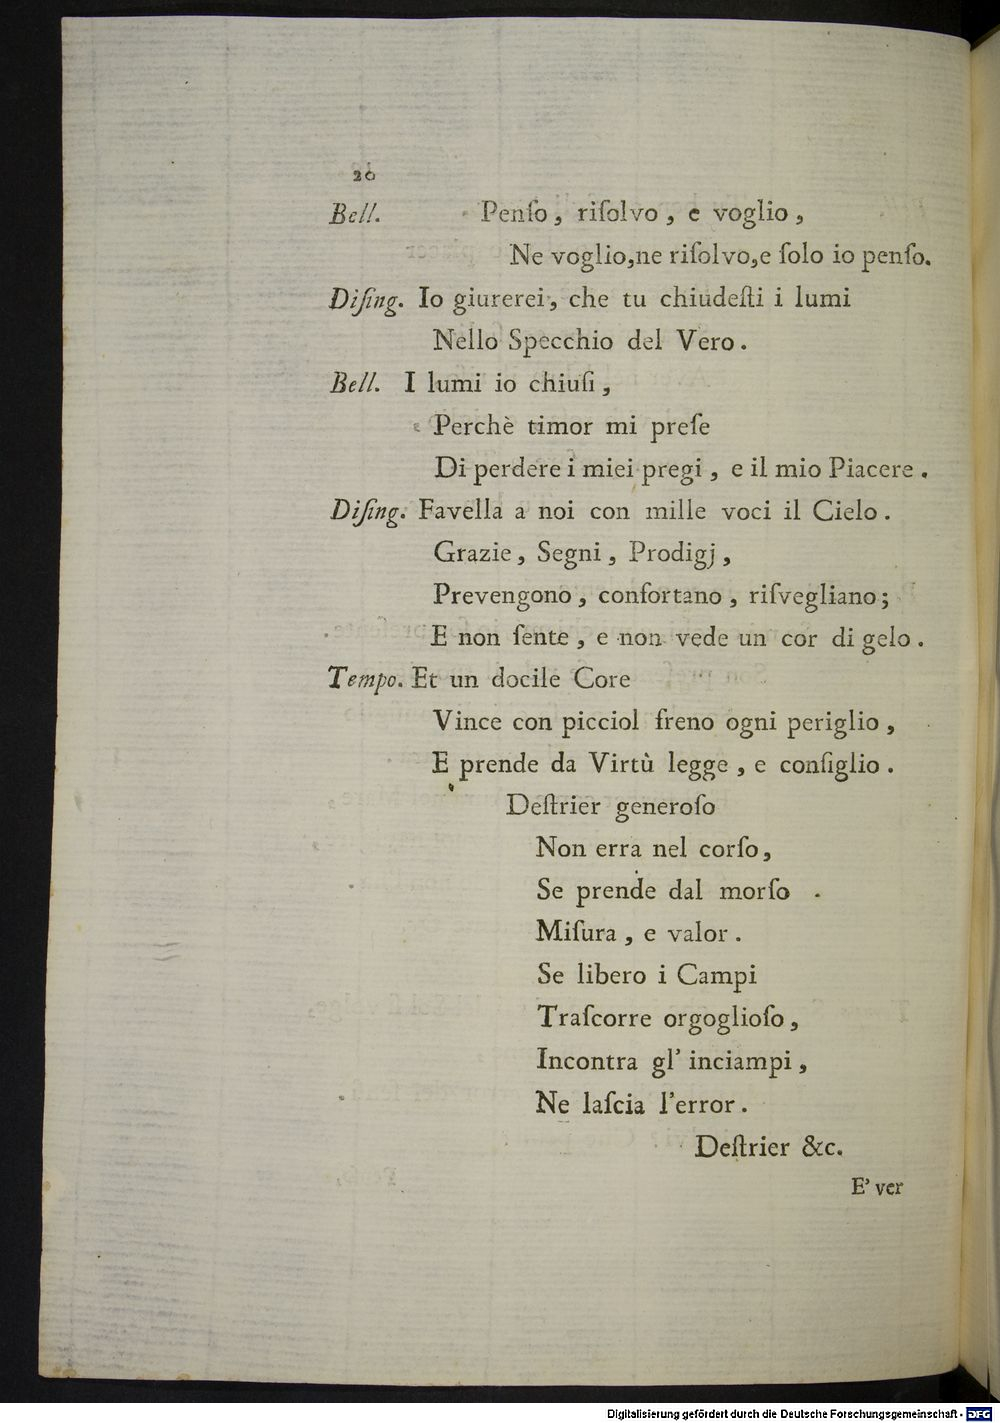 20
Bell. Penſo, riſolvo, e voglio,
Ne voglio,ne riſolvo,e ſolo io penſo.
Diſing. Io giurerei, che tu chiudeſti i lumi
Nello Specchio del Vero.
Bell. I lumi io chiuſi,
Perchè timor mi preſe
Di perdere i miei pregi, e il mio Piacere.
Diſing. Favella a noi con mille voci il Cielo.
Grazie, Segni, Prodigj,
Prevengono, confortano, riſvegliano;
E non ſente, e non vede un cor di gelo.
Tempo. Et un docile Core
Vince con picciol freno ogni periglio,
E prende da Virtù legge, e conſiglio.
Deſtrier generoſo
Non erra nel corſo,
Se prende dal morſo
Miſura, e valor.
Se libero i Campi
Traſcorre orgoglioſo,
Incontra gl' inciampi,
Ne laſcia l'error.
Deſtrier &c.
E' ver
Digitalisierung gefördert durch die Deutsche Forschungsgemeinschaft - DFG